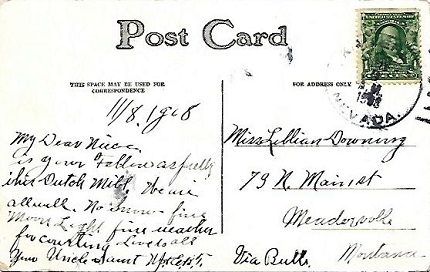 Post Card
THIS SPACE MAY BE USED FOR
CORRESPONDENCE
FOR ADDRESS ONLY
NEVADA.
11/8. 1908
My Dear Niece
is your Fellow as pretty
this Dutch Mill we are
all well. No snow fine
Moon Light fine weather
for courting Love to all
Your Uncle Aunt
Miss Lillian Downing
73 N. Main st
Meadersville
Via Butte
Montana